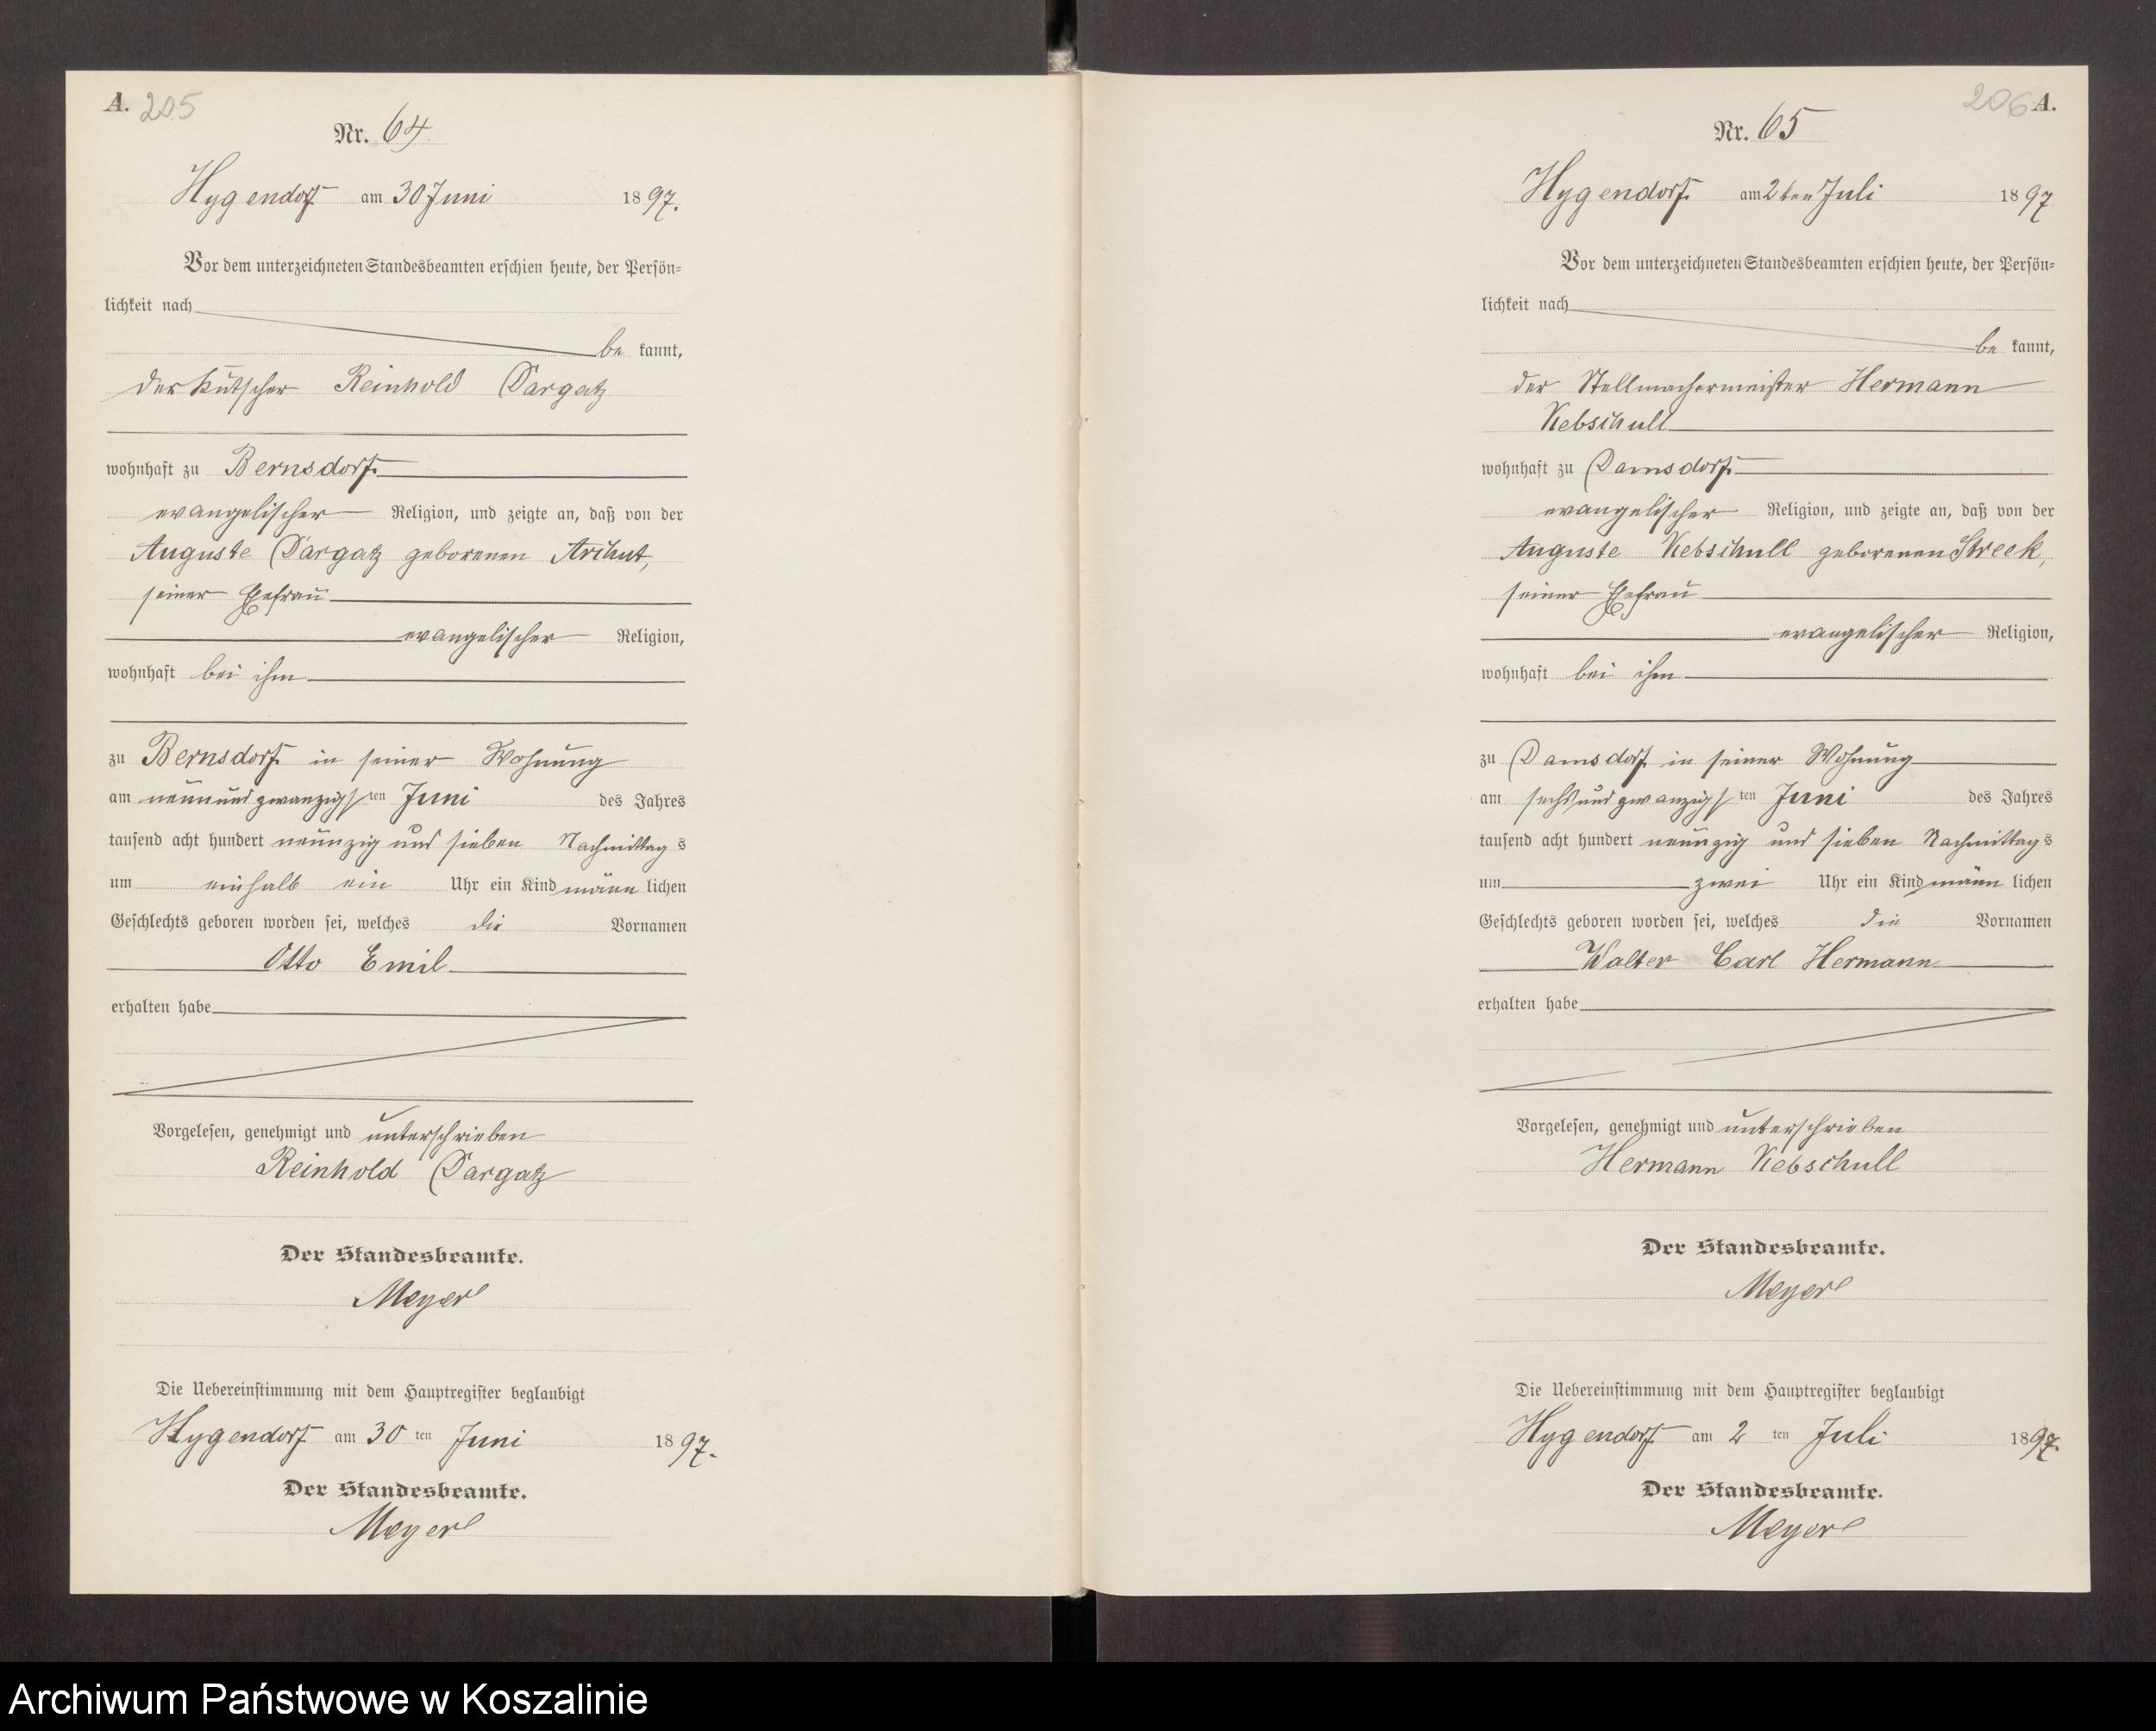 A. 205
Nr. 64
Hygendorf am 30 Juni 1897.
Vor dem unterzeichneten Standesbeamten erschien heute, der Persön=
lichkeit nach
be kannt,
der Kutscher Reinhold Dargatz
wohnhaft zu Bernsdorf
evangelischer Religion, und zeigte an, daß von der
Auguste Dargatz geborenen Arihut,
seiner Ehefrau
evangelischer Religion,
wohnhaft bei ihm
zu Bernsdorf in seiner Wohnung
am neunundzwanzigsten Juni des Jahres
tausend acht hundert neunzig und sieben Nachmittags
um einhalb ein Uhr ein Kind männlichen
Geschlechts geboren worden sei, welches die Vornamen
Otto Emil
erhalten habe
Vorgelesen, genehmigt und unterschrieben
Reinhold Dargatz
Der Standesbeamte.
Meyer
Die Uebereinstimmung mit dem Hauptregister beglaubigt
Hygendorf am 30 ten Juni 1897.
Der Standesbeamte.
Meyer
206 A.
Nr. 65
Hygendorf am 2ten Juli 1897
Vor dem unterzeichneten Standesbeamten erschien heute, der Persön=
lichkeit nach
be kannt,
der Stellmachermeister Hermann
Kebschull
wohnhaft zu Damsdorf
evangelischer Religion, und zeigte an, daß von der
Auguste Kebschull geborenen Streek,
seiner Ehefrau
evangelischer Religion,
wohnhaft bei ihm
zu Damsdorf in seiner Wohnung
am sechsundzwanzigsten Juni des Jahres
tausend acht hundert neunzig und sieben Nachmittags
um zwei Uhr ein Kind männlichen
Geschlechts geboren worden sei, welches die Vornamen
Walter Carl Hermann
erhalten habe
Vorgelesen, genehmigt und unterschrieben
Hermann Kebschull
Der Standesbeamte.
Meyer
Die Uebereinstimmung mit dem Hauptregister beglaubigt
Hygendorf am 2 ten Juli 1897.
Der Standesbeamte.
Meyer
Archiwum Państwowe w Koszalinie